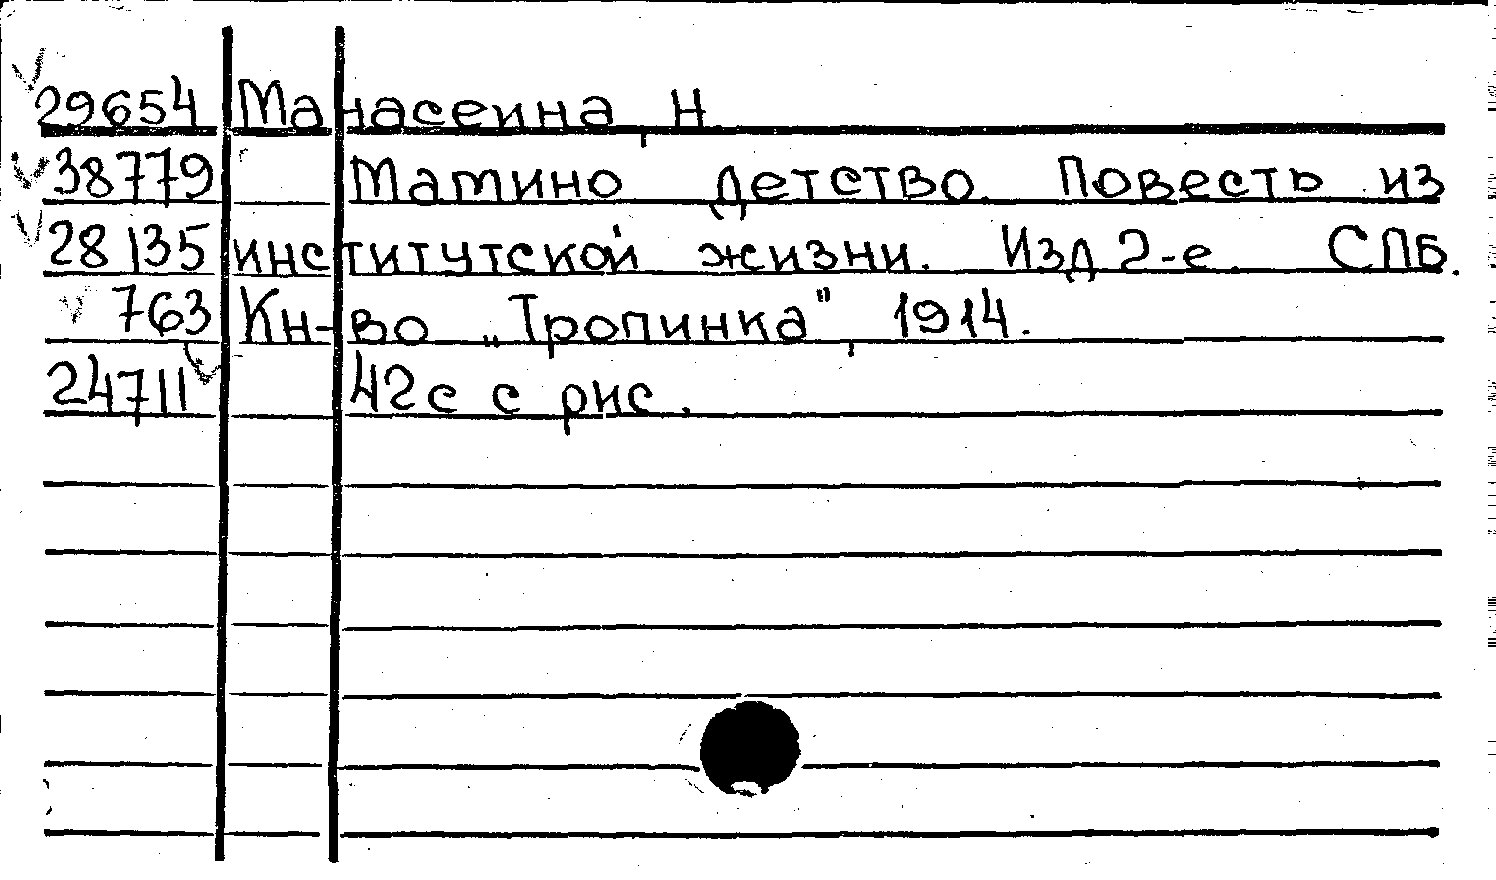 29654 Манасеина, Н.
38779 Мамино детство. Повесть из
28135 институтской жизни. Изд 2-е. СПБ.
763 Кн-во „Тропинка", 1914.
24711 42с с рис.